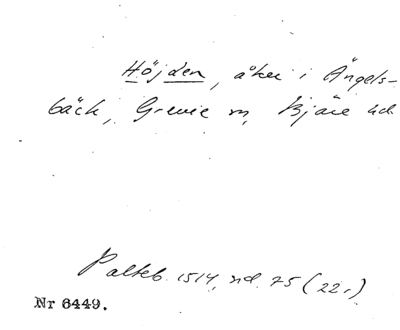 Höjden, åker i Ängels-
bäck, Grevie sn, Bjäre hd.
Palteb. 1514, sid. 75 (22r)
Nr 6449.